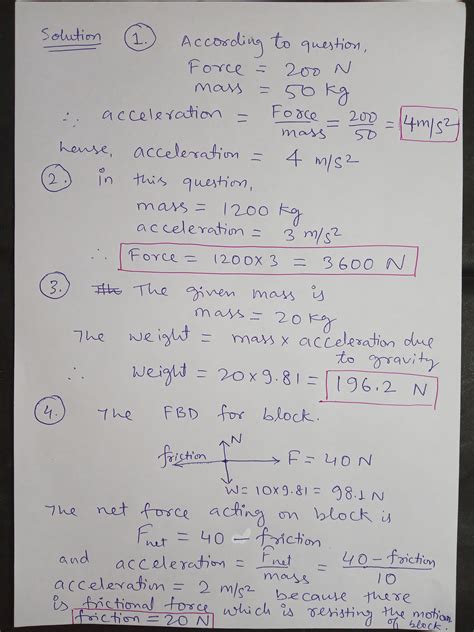 Solution ① According to question,
Force = 200 N
mass = 50 kg
∴ acceleration = Force/mass = 200/50 = 4m/s²
hense, acceleration = 4 m/s²
② in this question,
mass = 1200 kg
acceleration = 3 m/s²
∴ Force = 1200×3 = 3600 N
③ The given mass is
mass = 20 kg
The weight = mass × acceleration due
to gravity
∴ weight = 20×9.81 = 196.2 N
④ The FBD for block.
N
friction F = 40 N
W = 10×9.81 = 98.1 N
The net force acting on block is
Fnet = 40 - friction
and acceleration = Fnet/mass = 40 - friction/10
acceleration = 2 m/s² because there
is frictional force which is resisting the motion
friction = 20 N of block.